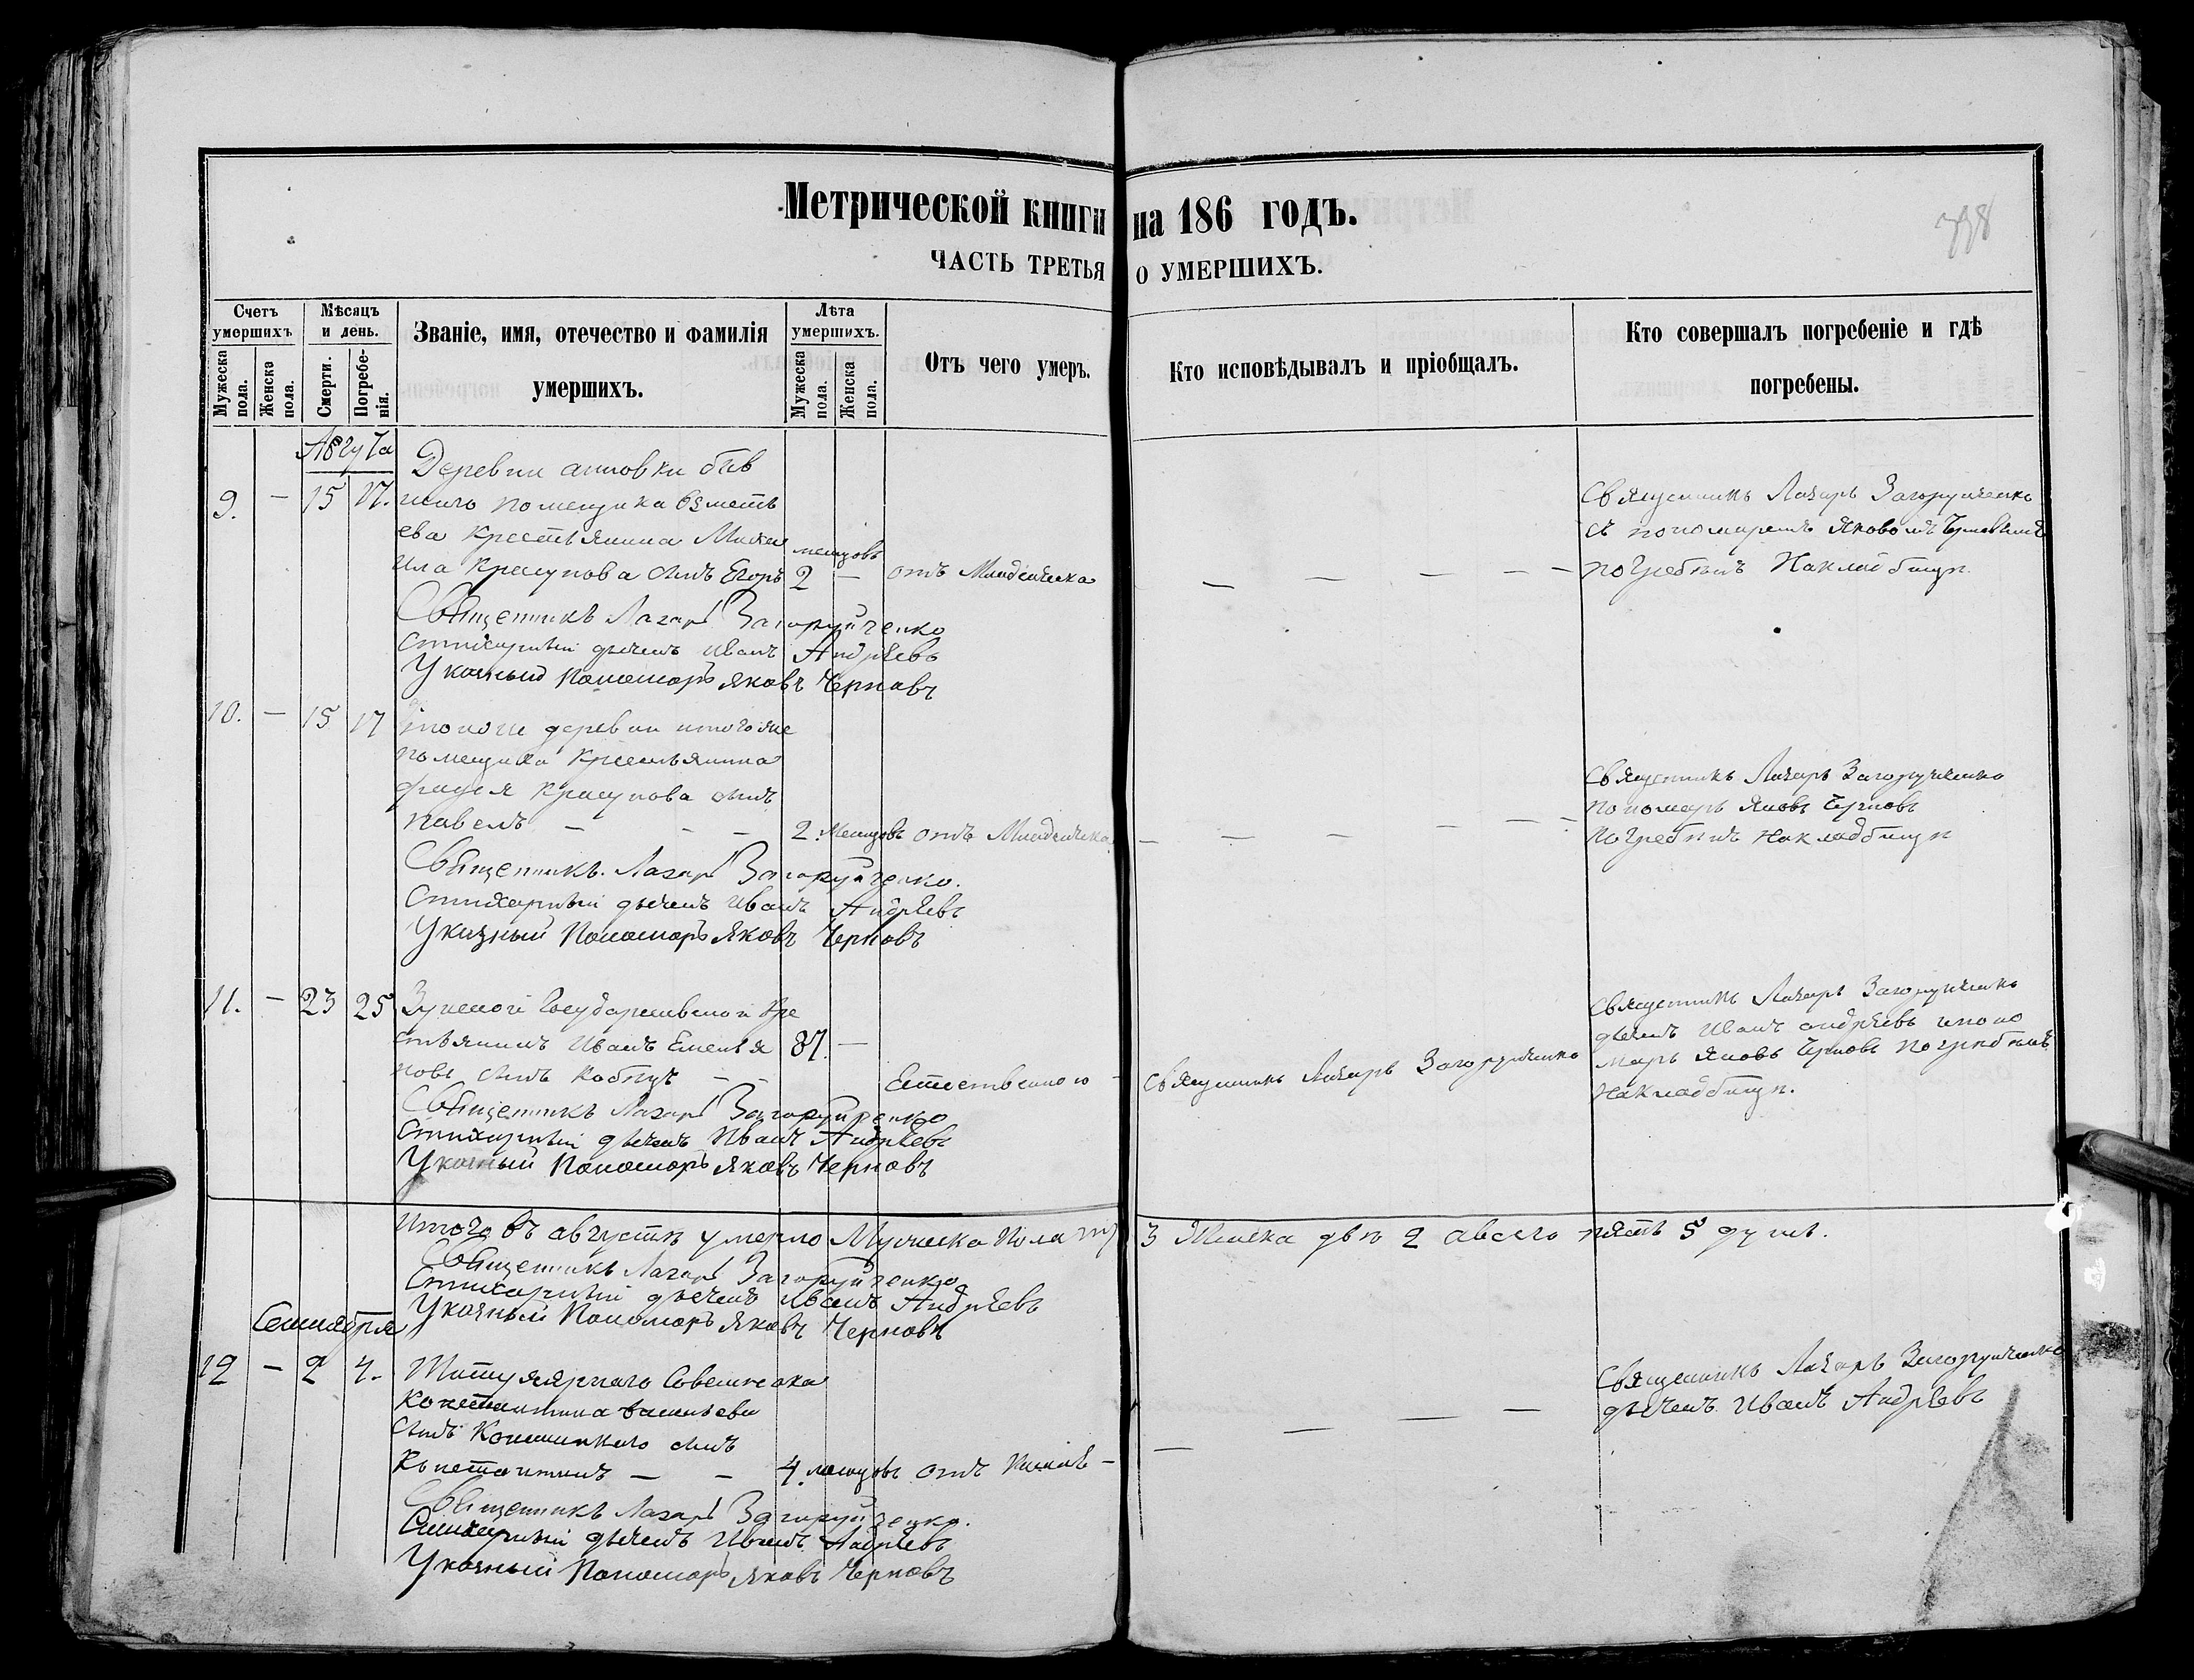 Метрической книги на 186 годъ.
ЧАСТЬ ТРЕТЬЯ О УМЕРШИХЪ.
Счетъ умершихъ.
Мужеска пола.
Женска пола.
Мѣсяцъ и день.
Смерти.
Погребенія.
Званіе, имя, отечество и фамилія
умершихъ.
Лѣта умершихъ.
Мужеска пола.
Женска пола.
Отъ чего умеръ.
Кто исповѣдывалъ и пріобщалъ.
Кто совершалъ погребеніе и гдѣ
погребены.
Августа
Деревни быв
9. — 15 17. шаго помещика
ева крестьянина Миха
ила Красунова сынъ Егоръ 2 месяцовъ — отъ Младенческа — — — —
Священникъ Лазарь Загоруйченко
съ пономаремъ Яковомъ Черновымъ
погребенъ Накладбищи.
Священникъ Лазарь Загоруйченко
Стихарный дьячекъ Иванъ Андрѣевъ
Указный Пономарь Яковъ Черновъ
10. — 15 17 тойже деревни итогоже
помещика крестьянина
Красунова сынъ
павелъ — — — 2. Месяцовъ отъ Младенческа — — — — —
Священникъ Лазарь Загоруйченко
пономарь Яковъ Черновъ
погребенъ Накладбищи
Священникъ Лазарь Загоруйченко.
Стихарный дьячекъ Иванъ Андрѣевъ
Указный Пономарь Яковъ Черновъ
11. — 23 25 Государственой кре
стьянинъ Иванъ Емелья 87. —
новъ сынъ — — Естественною — Священникъ Лазарь Загоруйченко
Священникъ Лазарь Загоруйченко
дьячекъ Иванъ Андрѣевъ ипоно
марь Яковъ Черновъ погребенъ
Накладбищи.
Священникъ Лазарь Загоруйченко
Стихарный дьячекъ Иванъ Андрѣевъ
Указный Пономарь Яковъ Черновъ
Итого въ августѣ умерло Мужеска пола 3 Женска двѣ 2 авсего пять 5 душъ.
Священникъ Лазарь Загоруйченко
Стихарный дьячекъ Иванъ Андрѣевъ
Указный Пономарь Яковъ Черновъ
Сентября
12 — 2 4. Титулярнаго Советника
Константина Васильева
сынъ
Константинъ — — 4. месяцовъ отъ — — — — —
Священникъ Лазарь Загоруйченко
дьячекъ Иванъ Андрѣевъ
Священникъ Лазарь Загоруйченко.
Стихарный дьячекъ Иванъ Андрѣевъ
Указный Пономарь Яковъ Черновъ